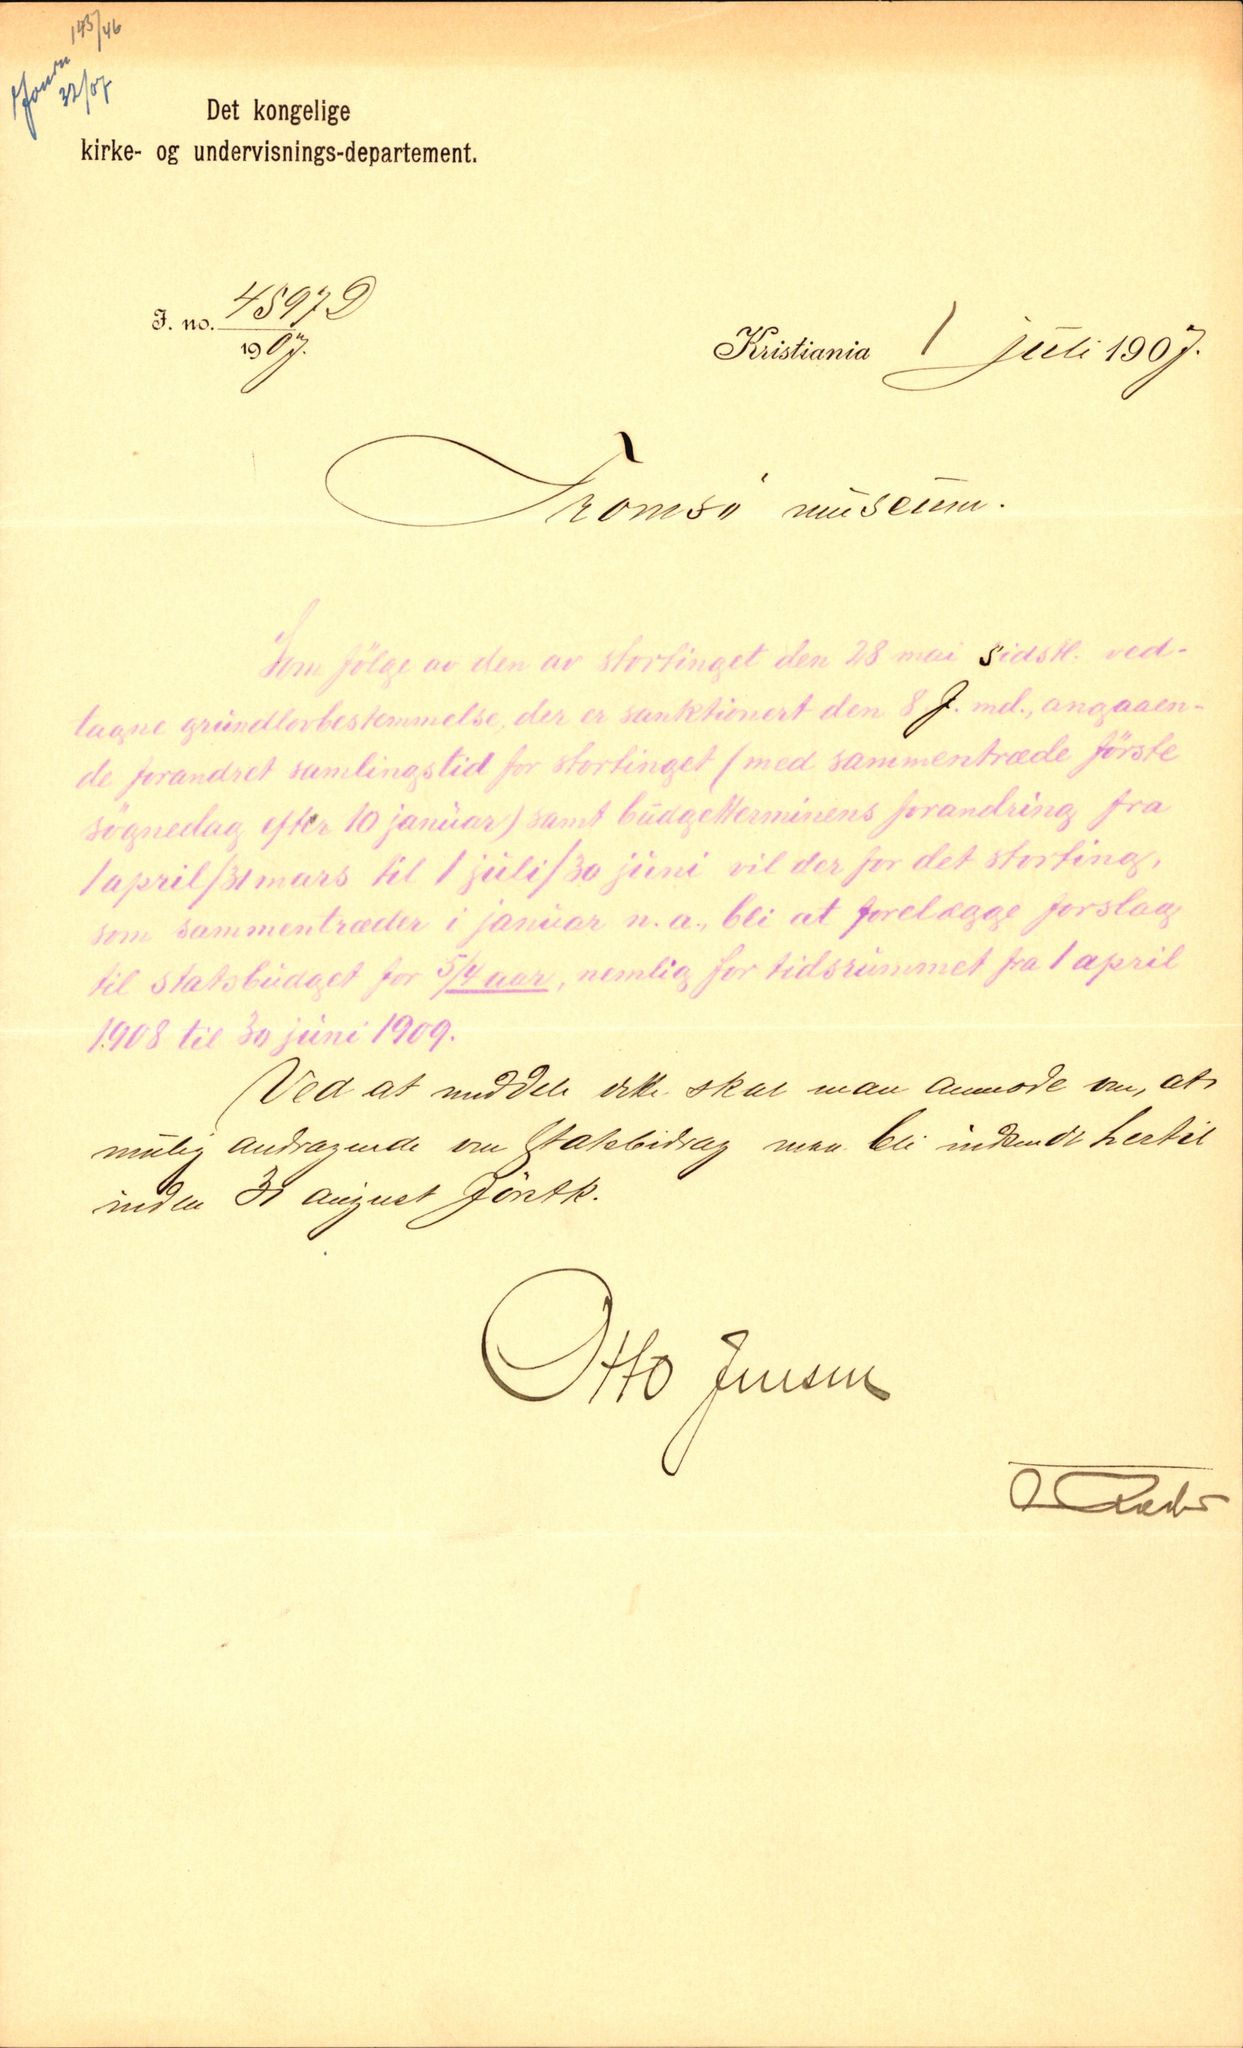 Journ 145/46
32/07
Det kongelige
kirke- og undervisnings-departement.
J. no. 4597 D
1907.
Kristiania 1 juli 1907.
Tromsö museum.
Som fölge av den av stortinget den 28 mai sidstl. ved-
tagne grundlovbestemmelse, der er sanktionert den 8 f. md., angaaen-
de forandret samlingstid for stortinget (med sammentræde förste
sögnedag efter 10 januar) samt budgetterminens forandring fra
1 april/31 mars til 1 juli/30 juni vil der for det storting,
som sammentræder i januar n. a., bli at forelægge forslag
til statsbudget for 5/4 aar, nemlig for tidsrummet fra 1 april
1908 til 30 juni 1909.
Ved at meddele dette skal man anmode om, at
mulig andragende om statsbidrag maa bli indsendt hertil
inden 31 august förstk.
Otto Jensen